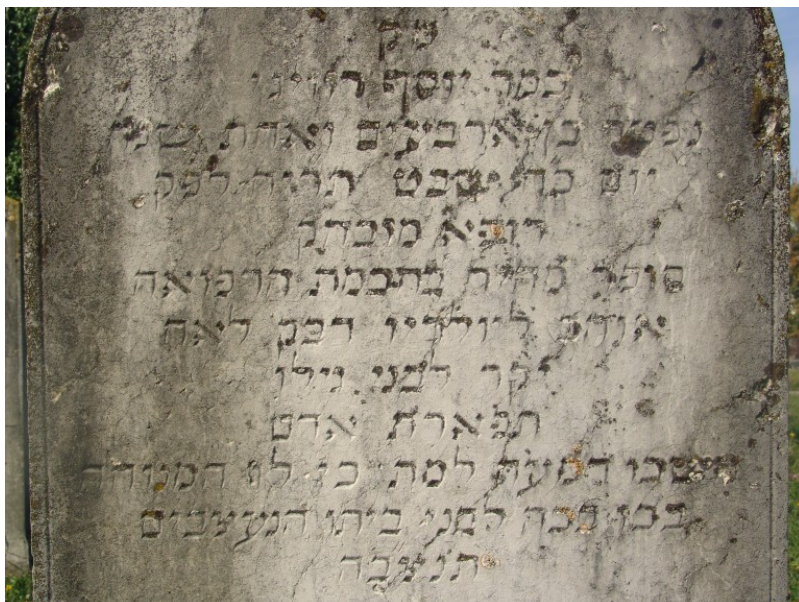 כמר יוסף
נפטר בן ארבעים ואחת שנה
יום כה שבט לפק
רופא מובהק
סופר מהיר בחכמת הרפואה
אוהב ליולדיו דבק לאה
יקר בגילו
תפארת אדם
דמעה למת כי לו המנוחה
בכו בכה לבני ביתו הנעצבים
תנצבה